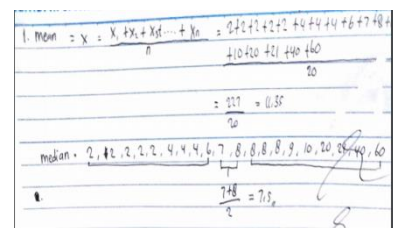 1. mean = x = x₁ + x₂ + x₃t..... + xn / n = 2+2+2+2+2 +4+4+4 +6+7+8+
+10+20 +21 +40 +60
20
= 227 / 20 = 11.35
median = 2, 2, 2, 2, 2, 4, 4, 4, 6, 7, 8, 8, 8, 8, 9, 10, 20, 21, 40, 60
7+8 / 2 = 7,5